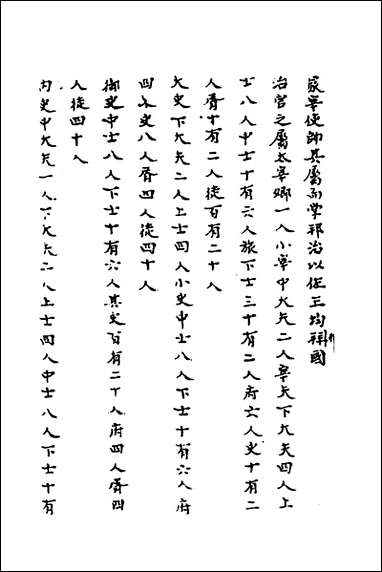 冢宰使帥其屬而掌邦治以佐王均邦國
治官之屬太宰卿一人小宰中大夫二人宰夫下大夫四人上
士八人中士十有六人旅下士三十有二人府六人史十有二
人胥十有二人徒百有二十人
大史下大夫二人上士四人小史中士八人下士十有六人府
四人史八人胥四人徒四十人
御史中士八人下士十有六人其史百有二十人府四人胥四
人徒四十人
内史中大夫一人下大夫二人上士四人中士八人下士十有